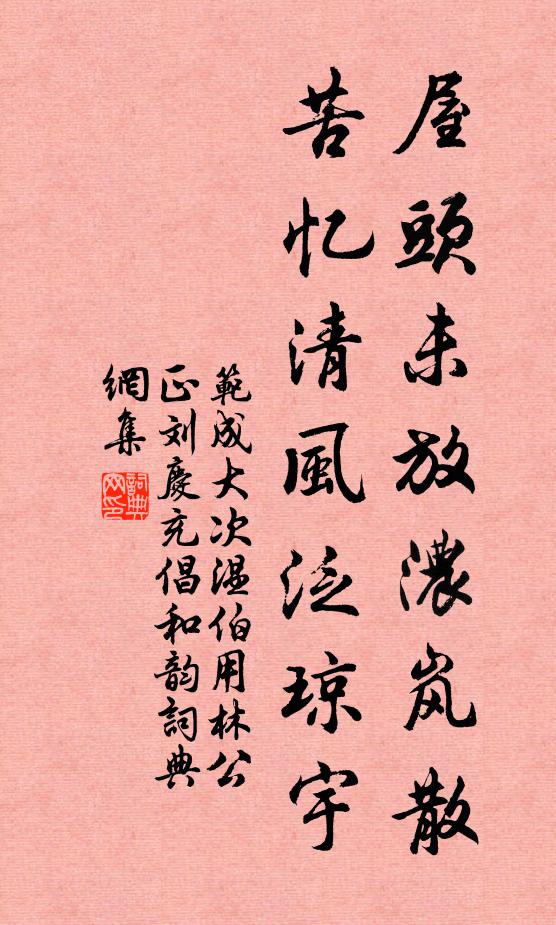 屋頭未放濃岚散
苦忆清風泛琼宇
範成大次温伯用林公
正刘慶充倡和韵詞典
網集
詞典網印